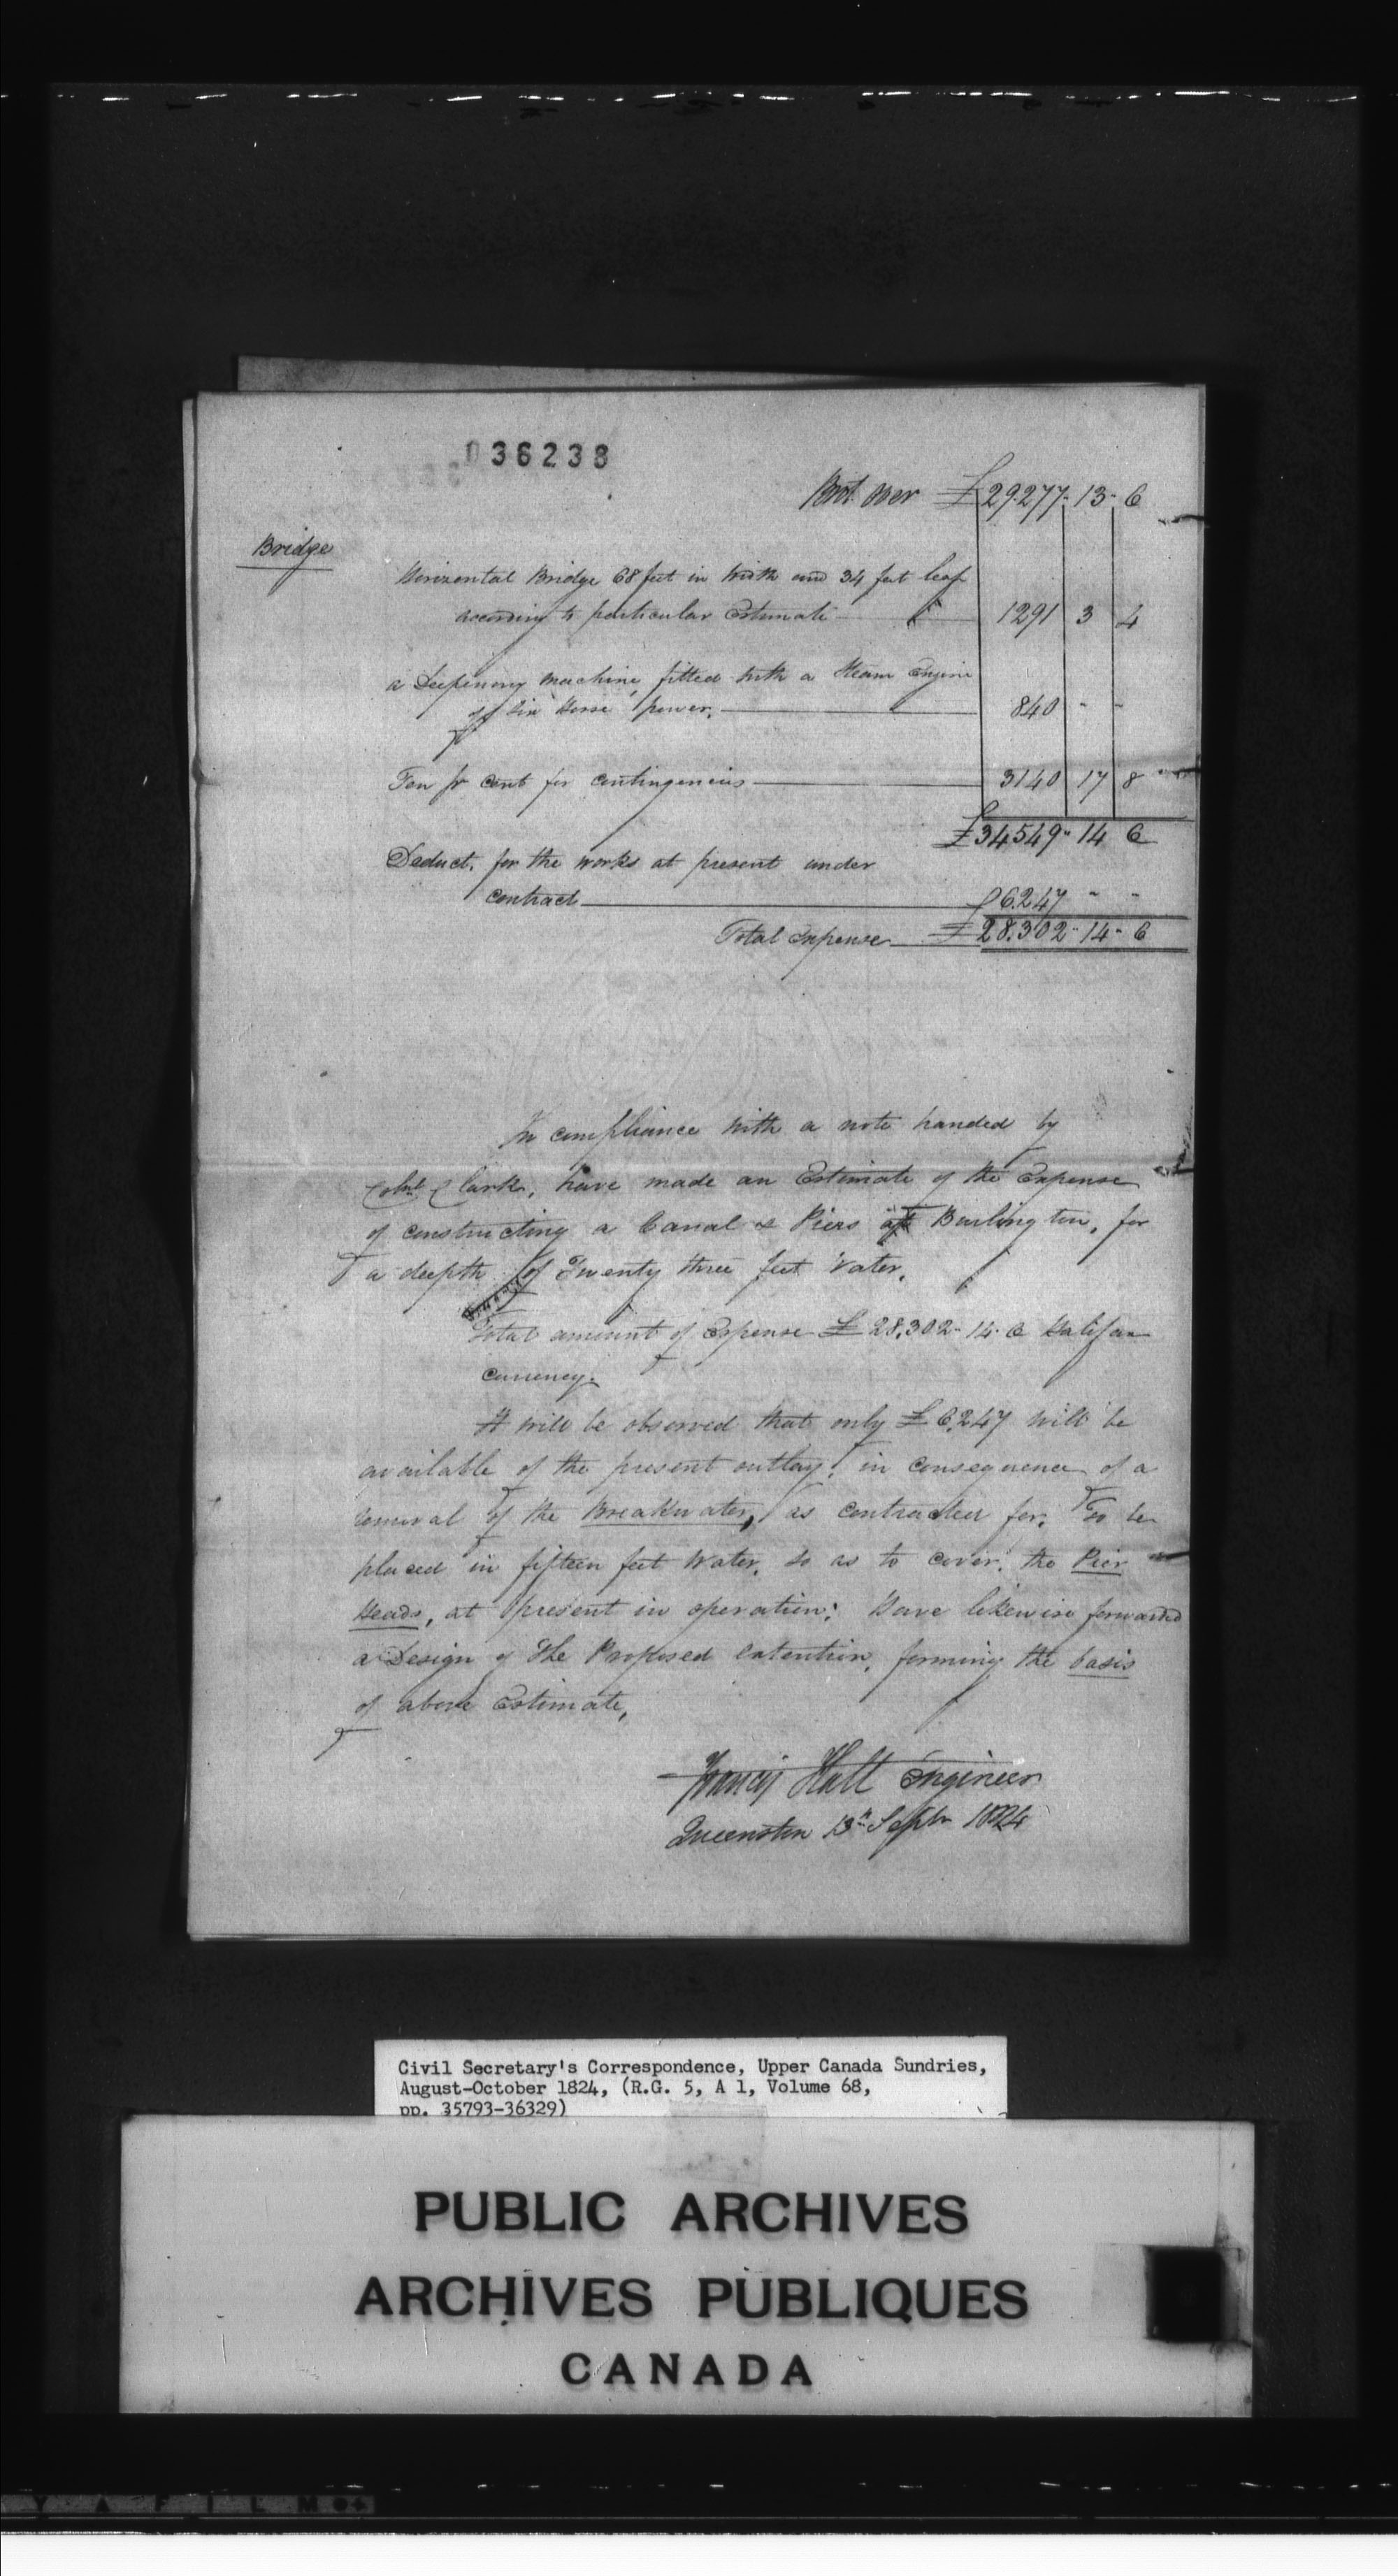 036238
Brot. over £29.277-13-6
Bridge
Horizontal Bridge 68 feet in width and 34 feet leaf
according to particular Estimate 1291 3 4
a Deepening machine, fitted with a Steam Engine
of Six Horse power. 840 - -
Ten pr Cent for contingencies 3140 17 8
£34549-14 6
Deduct, for the works at present under
contract £6.247 - -
Total Expense £28.302-14-6
In compliance with a note handed by
Colnl. Clark, have made an Estimate of the Expense
of constructing a Canal & Piers at Burlington, for
a deepth of Twenty three feet Water.
Total amount of Expense £28.302-14.6 Halifax
currency.
It will be observed that only £6.247 will be
available of the present outlay; in consequence of a
removal of the Breakwater, as contracted for. To be
placed in fifteen feet Water, so as to cover, the Pier
Heads, at present in operation: Have likewise forwarded
a Design of the Proposed extention, forming the basis
of above Estimate,
Francis Hall Engineer
Queenston 13th Septr 1824
Civil Secretary's Correspondence, Upper Canada Sundries,
August-October 1824, (R.G. 5, A 1, Volume 68,
pp. 35793-36329)
PUBLIC ARCHIVES
ARCHIVES PUBLIQUES
CANADA